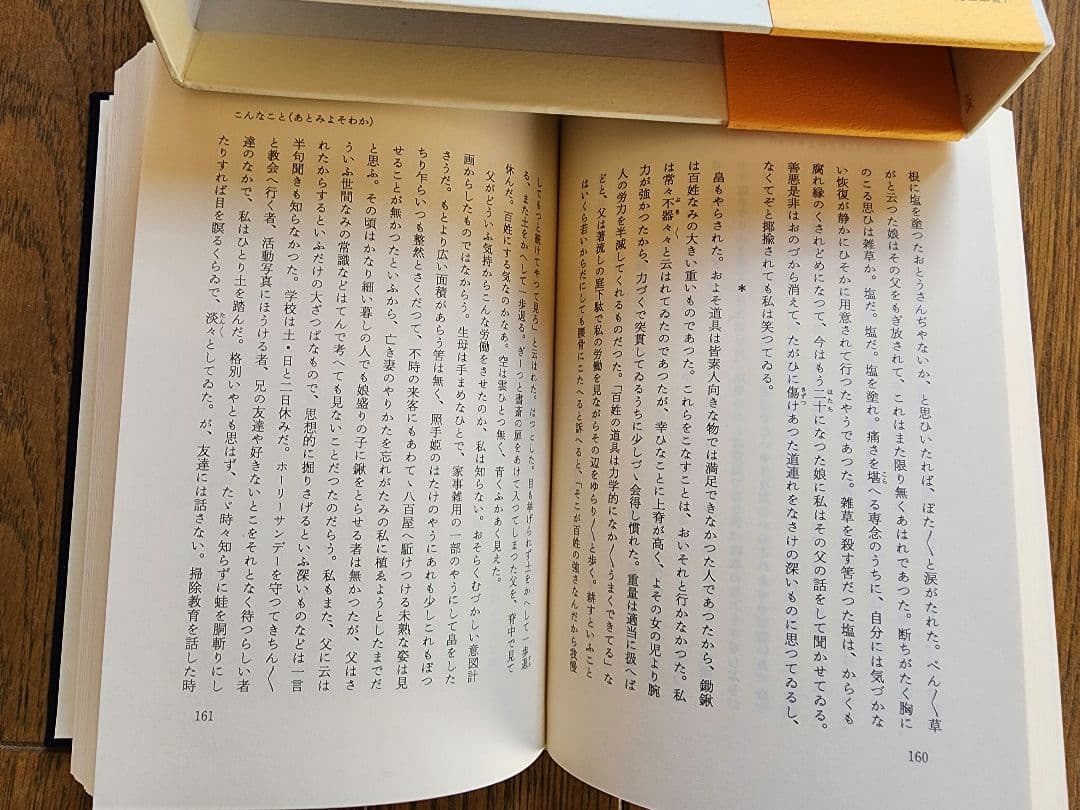 根に塩を塗つたおとうさんぢやないか、と思ひいたれば、ぽた〳〵と涙がたれた。ぺん〳〵草
がと云つた娘はその父をもぎ放されて、これはまた限り無くあはれであつた。断ちがたく胸に
のこる思ひは雑草か。塩だ。塩だ。塩を塗れ。痛さを堪へる専念のうちに、自分には気づかな
い恢復が静かにひそかに用意されて行つたやうであつた。雑草を殺す筈だつた塩は、からくも
腐れ縁のくされどめになつて、今はもう二十になつた娘に私はその父の話をして聞かせてゐる。
善悪是非はおのづから消えて、たがひに傷けあつた道連れをなさけの深いものに思つてゐるし、
なくてぞと揶揄されても私は笑つてゐる。
*
畠もやらされた。およそ道具は皆素人向きな物では満足できなかつた人であつたから、鋤鍬
は百姓なみの大きい重いものであつた。これらをこなすことは、おいそれと行かなかつた。私
は常々不器々々と云はれてゐたのであつたが、幸ひなことに上脊が高く、よその女の児より腕
力が強かつたから、力づくで突貫してゐるうちに少しづゝ会得し慣れた。重量は適当に扱へば
人の労力を半減してくれるものだつた。「百姓の道具は力学的になか〳〵うまくできてる」な
どと、父は著流しの庭下駄で私の労働を見ながらその辺をゆらり〳〵と歩く。耕すといふこと
はいくら若いからだにしても腰骨にこたへると訴へると、「そこが百姓の強さなんだから我慢
160
こんなこと(あとみよそわか)
してもつと続けてやつて見ろ」と云はれた。はつとした。目も挙げられず土をかへして一歩退
る、また土をかへして一歩退る。ぎーつと書斎の扉をあけて入つてしまつた父を、脊中で見て
休んだ。百姓にする気なのかなあ。空は雲ひとつ無く、青くふかあく見えた。
父がどういふ気持からこんな労働をさせたのか、私は知らない。おそらくむづかしい意図計
画からしたものではなからう。生母は手まめなひとで、家事雑用の一部のやうにして畠をした
さうだ。もとより広い面積があらう筈は無く、照手姫のはたけのやうにあれも少しこれもぽつ
ちり乍らいつも整然とさくだつて、不時の来客にもあわてゝ八百屋へ駈けつける未熟な姿は見
せることが無かつたといふから、亡き妻のやりかたを忘れがたみの私に植ゑようとしたまでだ
と思ふ。その頃はかなり細い暮しの人でも娘盛りの子に鍬をとらせる者は無かつたが、父はさ
ういふ世間なみの常識などはてんで考へても見ないことだつたのだらう。私もまた、父に云は
れたからするといふだけの大ざつぱなもので、思想的に掘りさげるといふ深いものなどは一言
半句聞きも知らなかつた。学校は土・日と二日休みだ。ホーリーサンデーを守つてきちん〳〵
と教会へ行く者、活動写真にほうける者、兄の友達や好きないとこをそれとなく待つらしい者
達のなかで、私はひとり土を踏んだ。格別いやとも思はず、たゞ時々知らずに蛙を胴斬りにし
たりすれば目を瞑るくらゐで、淡々としてゐた。が、友達には話さない。掃除教育を話した時
161